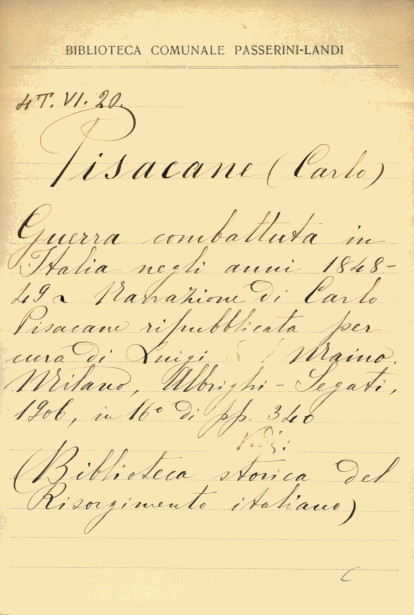 BIBLIOTECA COMUNALE PASSERINI-LANDI
4T.VI.20
Pisacane (Carlo)
Guerra combattuta in
Italia negli anni 1848-
49 Narrazione di Carlo
Pisacane ripubblicata per
cura di Luigi Maino.
Milano, Albrighi-Segati,
1906, in 16° di pp. 340
(Biblioteca storica del
Risorgimento italiano)